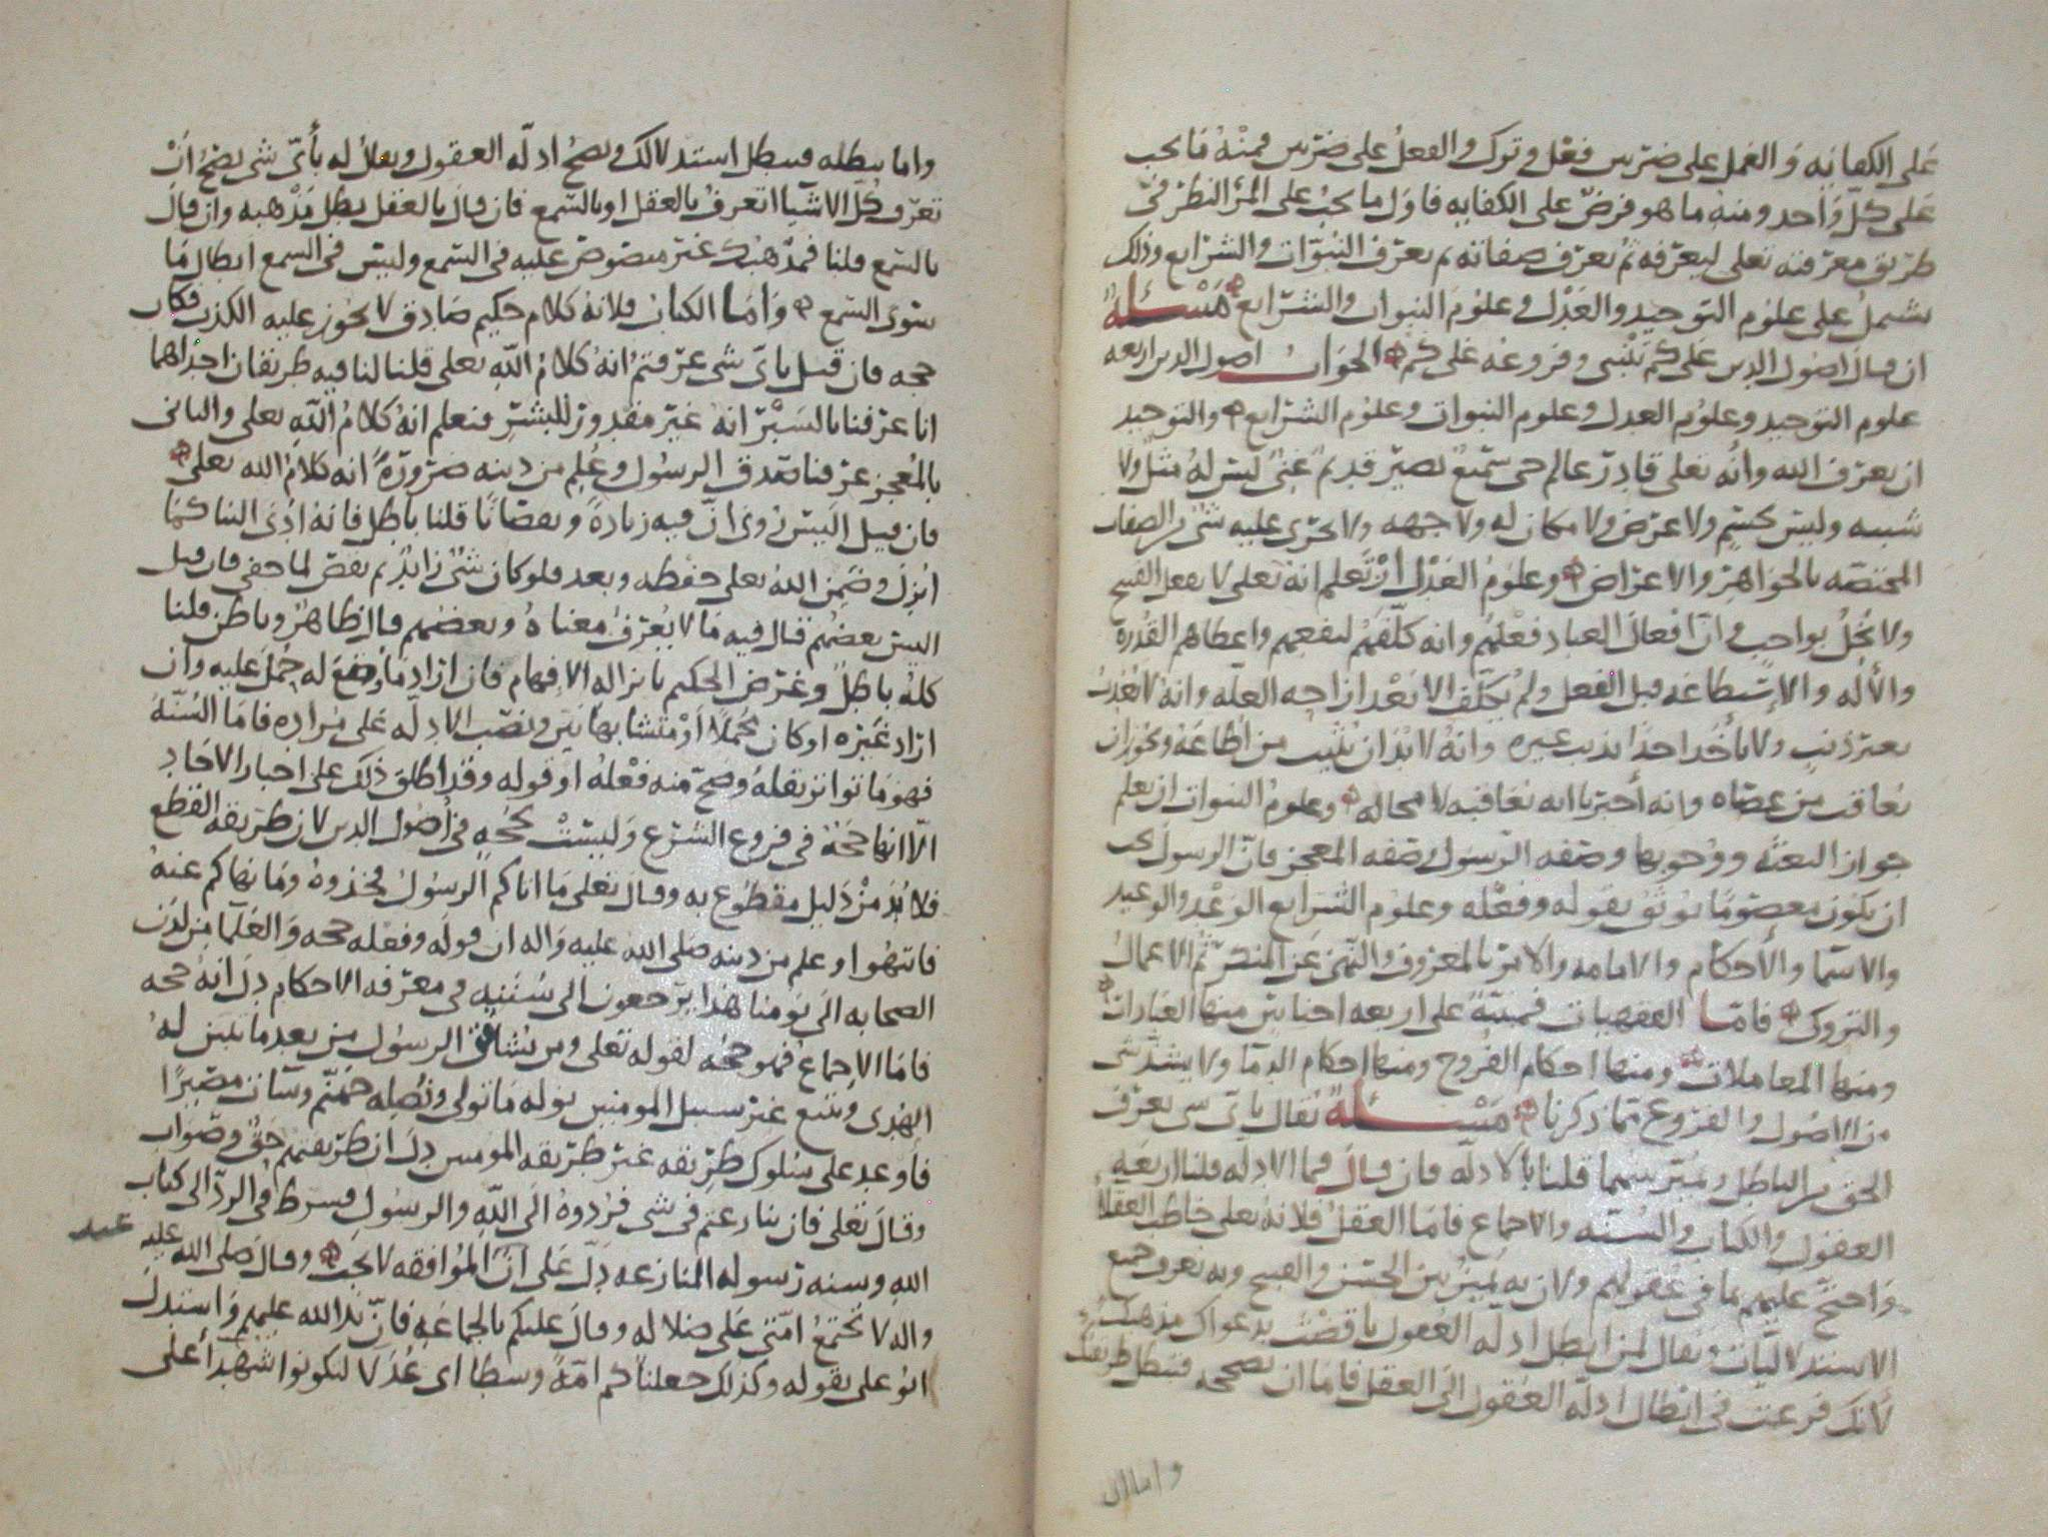 على الكفايه والعمل على ضربين فعل وترك والفعل على ضربين فمنه ما يجب
على كل واحد ومنه ما هو فرض على الكفايه فاول ما يجب على المرء النظر في
طريق معرفته تعلى ليعرفه ثم يعرف صفاته ثم يعرف النبوات والشرايع وذلك
يشمل على علوم التوحيد والعدل وعلوم النبوات والشرايع مسئلة
ان قال اصول الدين على كم تبنى وفروعه على كم الجواب اصول الدين اربعه
علوم التوحيد وعلوم العدل وعلوم النبوات وعلوم الشرايع والتوحيد
ان يعرف الله وانه تعلى قادر عالم حي سميع بصير قديم غني ليس له مثل ولا
شبيه وليس كجسم ولا عرض ولا مكان له ولا جهه ولا يجرى عليه شى من الصفات
المختصه بالجواهر والاعراض وعلوم العدل ان تعلم انه تعلى لا يفعل القبيح
ولا يخل بواجب وان افعال العباد فعلهم وانه كلفهم لنفعهم واعطاهم القدرة
والأله والإستطاعه قبل الفعل ولم يكلف الا بعد ازاحه العله وانه لا يعذب
بغير ذنب ولا يأخذ احدا بذنب غيره وانه لا بد ان يثيب من اطاعه ويجوز ان
يعاقب من عصاه وانه أخبرنا انه يعاقبه لا محاله وعلوم النبوات ان يعلم
جواز البعثه ووجوبها وصفه الرسول وصفه المعجز فان الرسول يجب
ان يكون معصوما يوثق بقوله وفعله وعلوم الشرايع الوعد والوعيد
والاسما والأحكام والامامه والامر بالمعروف والنهى عن المنكر ثم الاعمال
والتروك فاما الفقهيات فمبنية على اربعه اجناس منها العبادات
ومنها المعاملات ومنها احكام الفروج ومنها احكام الدما ولا يشذ شى
من الاصول والفروع مما ذكرنا مسئلة يقال باي شى يعرف
الحق من الباطل ويميز بينهما قلنا بالادله فان قال فما الادله قلنا اربعه
العقول والكتاب والسنه والاجماع فاما العقل فلانه تعلى خاطب العقلا
واحتج عليهم بما في عقولهم ولان به يميز بين الحسن والقبيح وبه نعرف جميع
الاستدلاليات ويقال لمن ابطل ادله العقول ناقضت بدعواك مذهبك
لانك فزعت في ابطال ادله العقول الى العقل فاما ان تصححه فتبطل طريقك
واما ان
واما يبطله فيبطل استدلالك ويصح ادله العقول ويقال له بأي شى يصح ان
تعرف كل الاشيا اتعرف بالعقل او بالسمع فان قال بالعقل بطل مذهبه وان قال
بالسمع قلنا فمذهبك غير منصوص عليه في السمع وليس في السمع ابطال ما
سوى السمع واما الكتاب فلانه كلام حكيم صادق لا يجوز عليه الكذب فكان
حجه فان قيل باي شى عرفتم انه كلام الله تعلى قلنا لنا فيه طريقان احداهما
انا عرفنا بالسبر انه غير مقدور للبشر فنعلم انه كلام الله تعلى والثانى
بالمعجز عرفنا صدق الرسول وعلم من دينه ضرورة انه كلام الله تعلى
فان قيل اليس روى ان فيه زيادة ونقصانا قلنا باطل فانه ادى الينا كما
انزل وضمن الله تعلى حفظه وبعد فلو كان شى زايد ثم نقص لما خفى فان قيل
اليس بعضهم قال فيه ما لا يعرف معناه وبعضهم قال ظاهر وباطن قلنا
كله باطل وغرض الحكيم بانزاله الافهام فان اراد ما وضع له حمل عليه وان
اراد غيره او كان مجملا او متشابها بين ونصب الادله على مراده فاما السنة
فهو ما تواتر نقله وصح منه فعله او قوله وقد اطلق ذلك على اخبار الاحاد
الا انها حجة في فروع الشرع وليست بحجه في أصول الدين لان طريقه القطع
فلا بد من دليل مقطوع به وقال تعلى ما اتاكم الرسول فخذوه وما نهاكم عنه
فانتهوا وعلم من دينه صلى الله عليه واله ان قوله وفعله حجه والعلما من لدن
الصحابه الى يومنا هذا يرجعون الى سنته في معرفه الاحكام دل انه حجه
فاما الاجماع فهو حجه لقوله تعلى ومن يشاقق الرسول من بعد ما تبين له
الهدى ويتبع غير سبيل المومنين نوله ما تولى ونصله جهنم وساءت مصيرا
فاوعد على سلوك طريقه غير طريقه المومنين دل ان طريقتهم حق وصواب
وقال تعلى فان تنازعتم في شى فردوه الى الله والرسول فشرط في الرد الى كتاب
الله وسنه رسوله المنازعه دل على ان الموافقه لا يجب وقال صلى الله عليه
واله لا تجتمع امتى على ضلاله وقال عليكم بالجماعه فان يد الله عليهم واستدل
ابو على بقوله وكذلك جعلناكم امة وسطا اى عدلا لتكونوا شهدا على